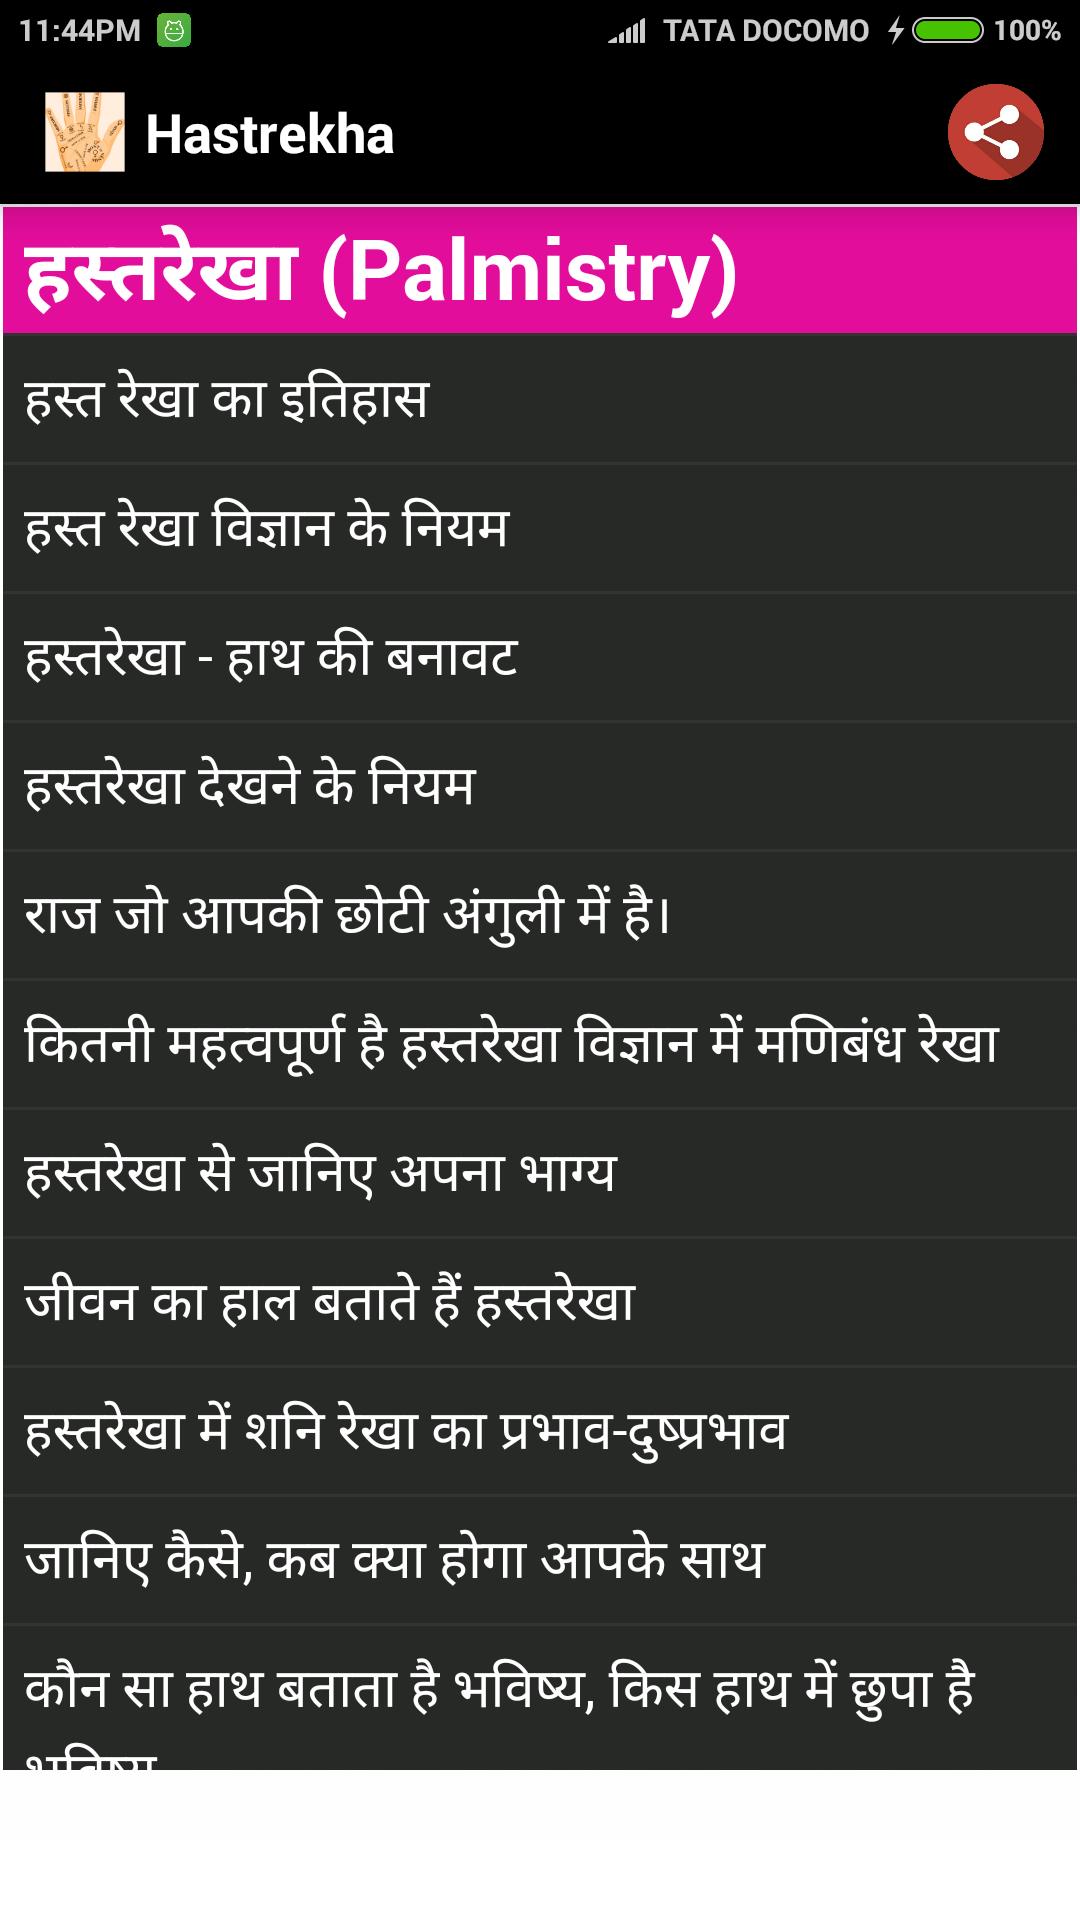 11:44PM TATA DOCOMO 100%
Hastrekha
हस्तरेखा (Palmistry)
हस्त रेखा का इतिहास
हस्त रेखा विज्ञान के नियम
हस्तरेखा - हाथ की बनावट
हस्तरेखा देखने के नियम
राज जो आपकी छोटी अंगुली में है।
कितनी महत्वपूर्ण है हस्तरेखा विज्ञान में मणिबंध रेखा
हस्तरेखा से जानिए अपना भाग्य
जीवन का हाल बताते हैं हस्तरेखा
हस्तरेखा में शनि रेखा का प्रभाव-दुष्प्रभाव
जानिए कैसे, कब क्या होगा आपके साथ
कौन सा हाथ बताता है भविष्य, किस हाथ में छुपा है
भविष्य